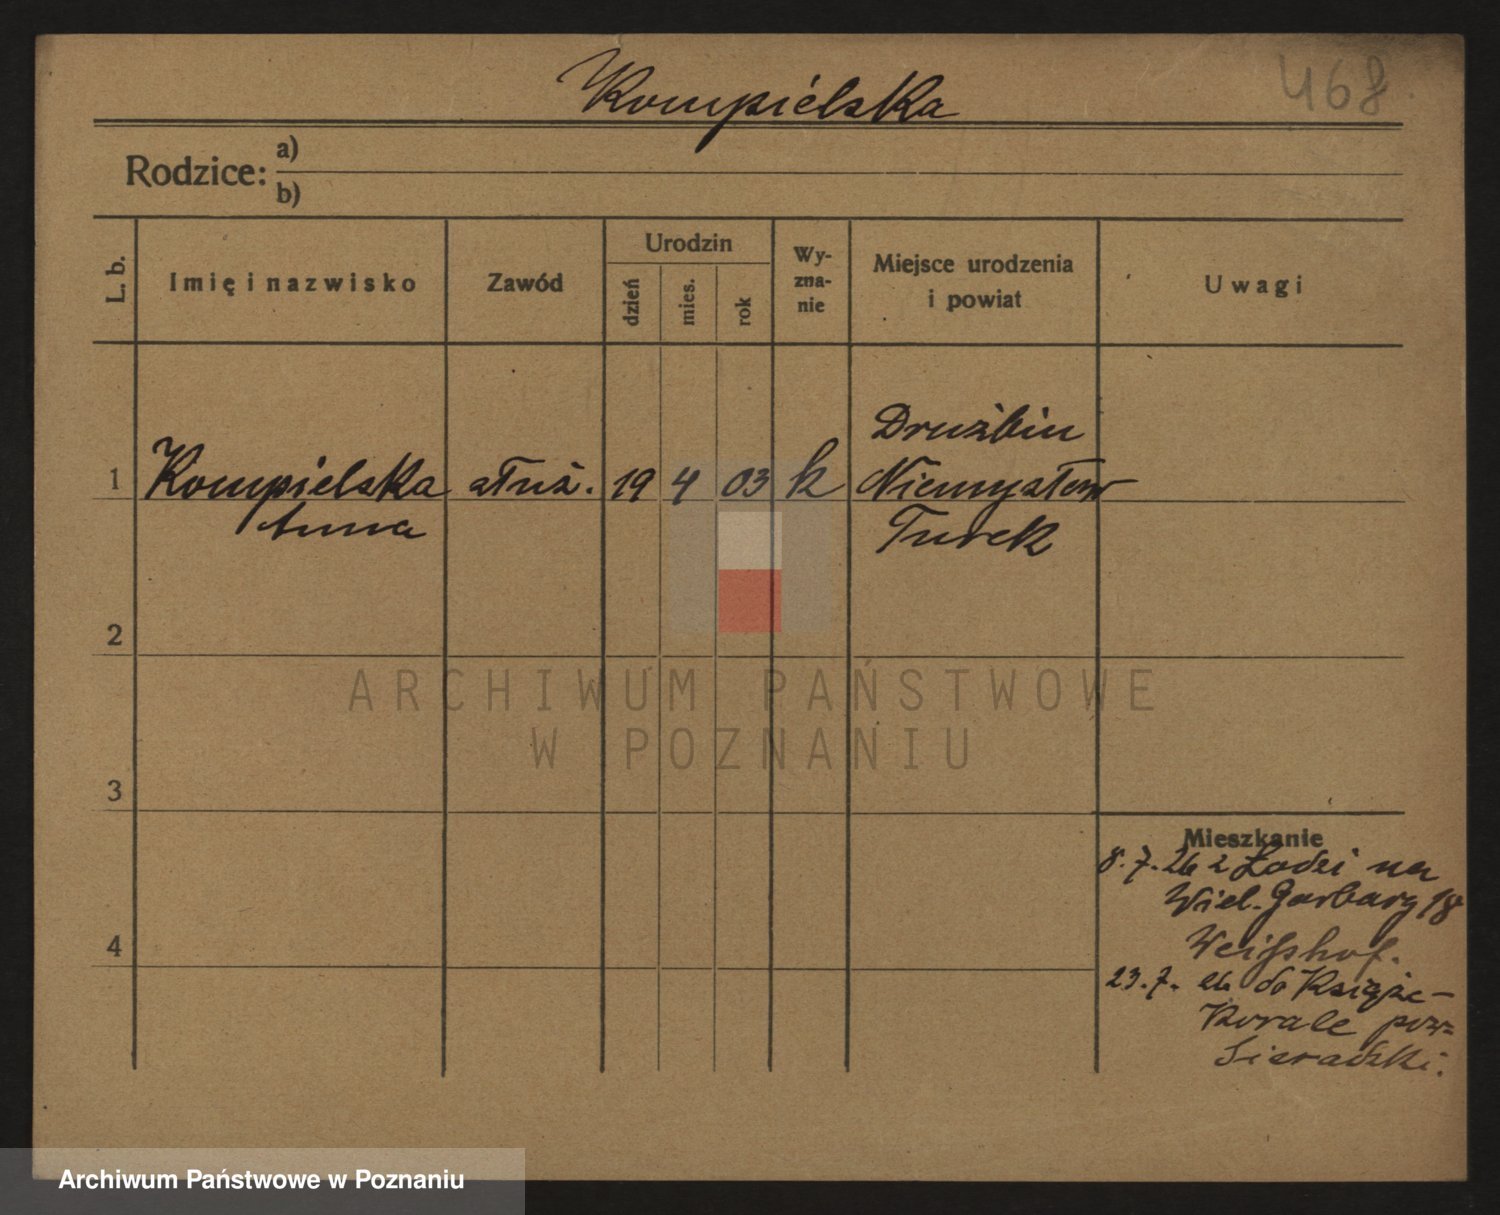 Kompielska
468
Rodzice:
a)
b)
L. b.
Imię i nazwisko
Zawód
Urodzin
dzień
mies.
rok
Wy-
zna-
nie
Miejsce urodzenia
i powiat
Uwagi
1
Kompielska
Anna
służ.
19
4
03
k
Drużbin
Niemysłów
Turek
2
3
4
Mieszkanie
8.7.26 z Łodzi na
Wiel. Garbary 18
Weißhof.
23.7. 26 do Książe-
pow=
Sieradzki.
ARCHIWUM PAŃSTWOWE
W POZNANIU
Archiwum Państwowe w Poznaniu